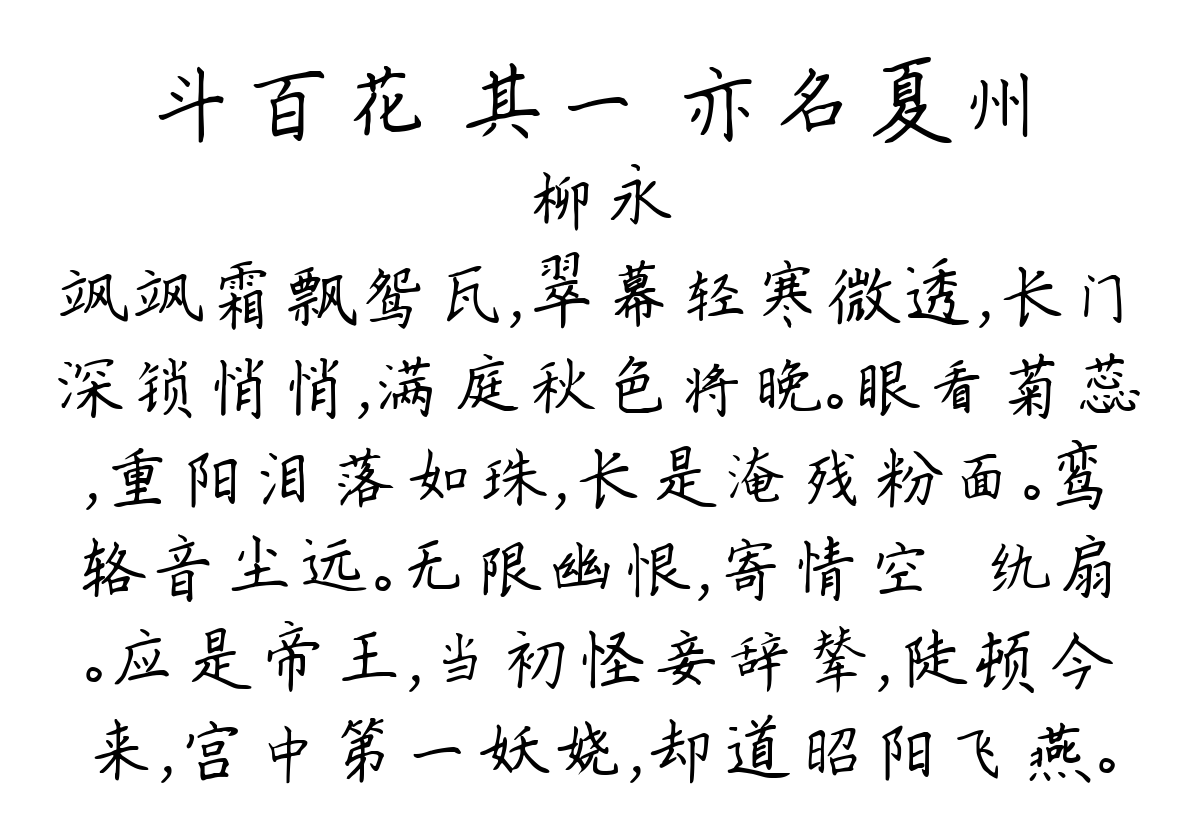 斗百花 其一 亦名夏州
柳永
飒飒霜飘鸳瓦,翠幕轻寒微透,长门
深锁悄悄,满庭秋色将晚。眼看菊蕊
,重阳泪落如珠,长是淹残粉面。鸾
辂音尘远。无限幽恨,寄情空 纨扇
。应是帝王,当初怪妾辞辇,陡顿今
来,宫中第一妖娆,却道昭阳飞燕。